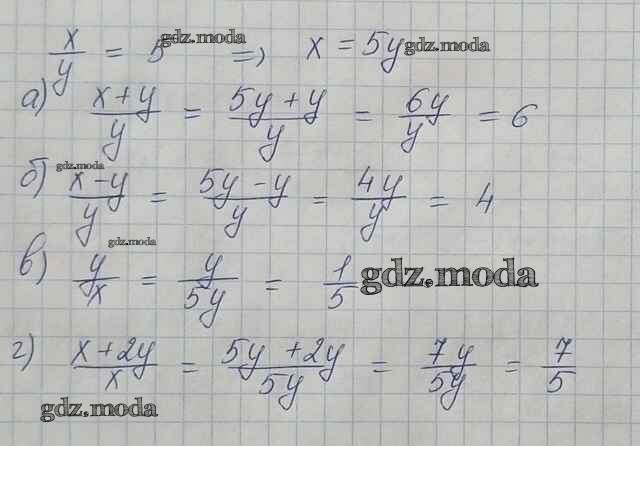 x/y = 5 gdz.moda => x = 5y gdz.moda
а) (x+y)/y = (5y+y)/y = 6y/y = 6
gdz.moda
б) (x-y)/y = (5y-y)/y = 4y/y = 4
gdz.moda
в) y/x = y/5y = 1/5 gdz.moda
г) (x+2y)/x = (5y+2y)/5y = 7y/5y = 7/5
gdz.moda